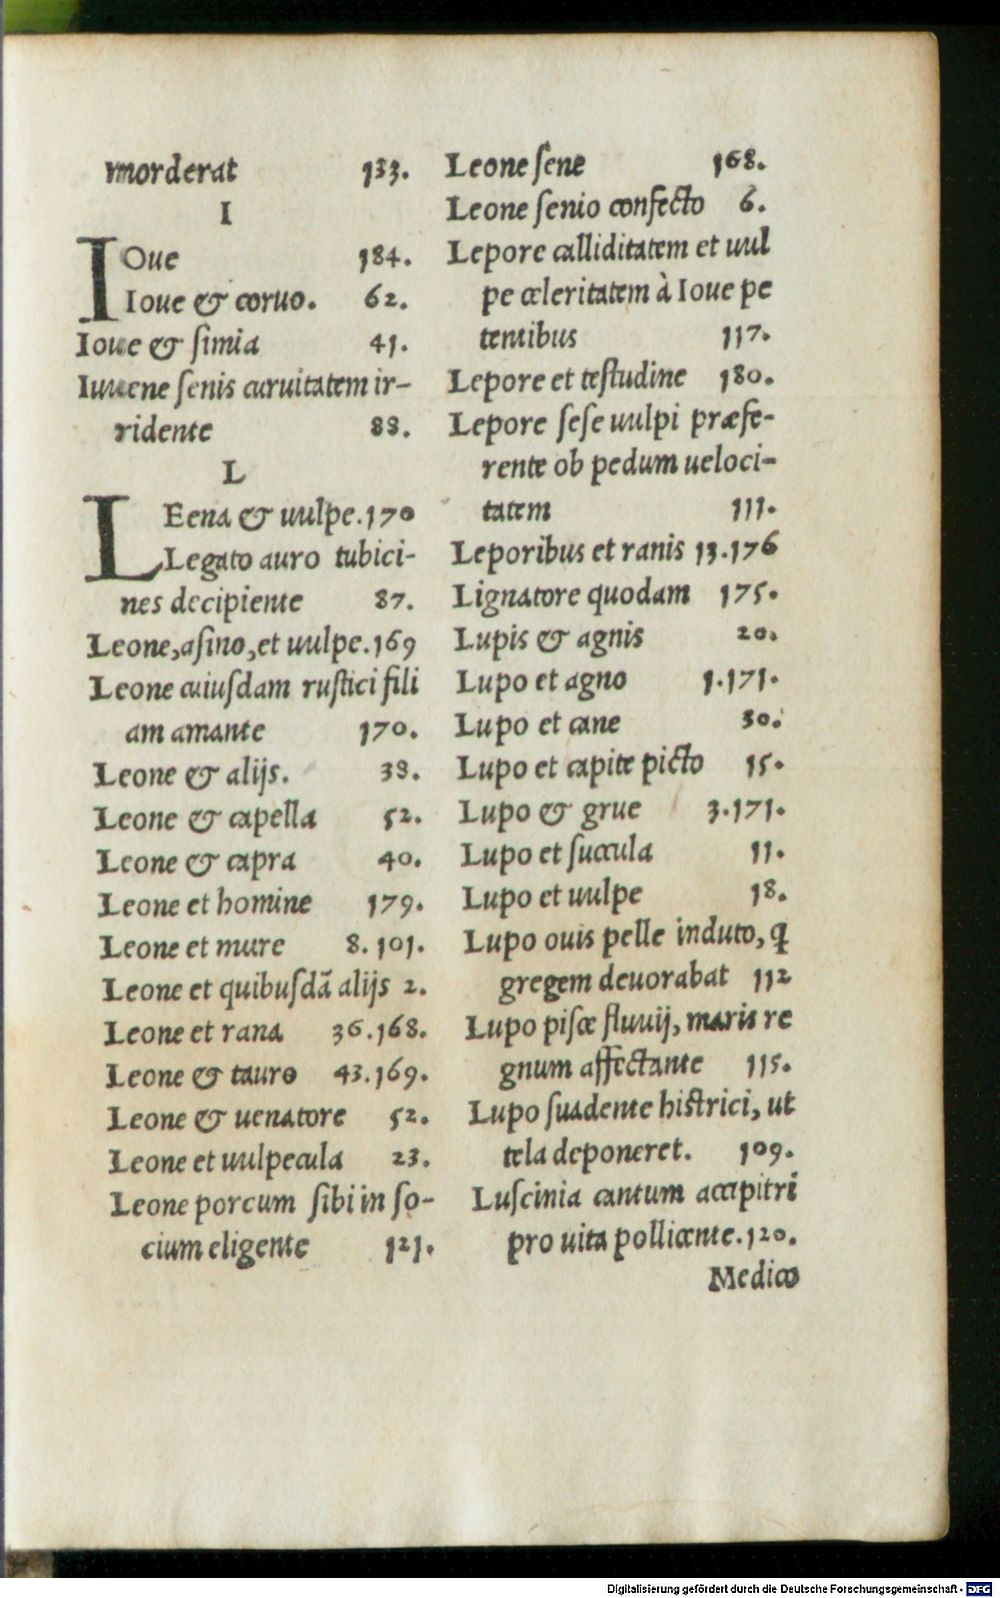 morderat 133.
I
IOue 184.
Ioue & coruo. 62.
Ioue & simia 41.
Iuuene senis curuitatem ir-
ridente 88.
L
LEena & uulpe. 170
Legato auro tubici-
nes decipiente 87.
Leone, asino, et uulpe. 169
Leone cuiusdam rustici fili
am amante 170.
Leone & alijs. 38.
Leone & capella 52.
Leone & capra 40.
Leone et homine 179.
Leone et mure 8. 101.
Leone et quibusdā alijs 2.
Leone et rana 36.168.
Leone & tauro 43.169.
Leone & uenatore 52.
Leone et uulpecula 23.
Leone porcum sibi in so-
cium eligente 121.
Leone sene 168.
Leone senio confecto 6.
Lepore calliditatem et uul
pe celeritatem à Ioue pe
tentibus 117.
Lepore et testudine 180.
Lepore sese uulpi præfe-
rente ob pedum ueloci-
tatem 111.
Leporibus et ranis 13.176
Lignatore quodam 175.
Lupis & agnis 20.
Lupo et agno 1.171.
Lupo et cane 30.
Lupo et capite picto 15.
Lupo & grue 3.171.
Lupo et succula 11.
Lupo et uulpe 18.
Lupo ouis pelle induto, q
gregem deuorabat 112
Lupo pisce fluuij, maris re
gnum affectante 115.
Lupo suadente histrici, ut
tela deponeret. 109.
Luscinia cantum accipitri
pro uita pollicente. 120.
Medico
Digitalisierung gefördert durch die Deutsche Forschungsgemeinschaft - DFG